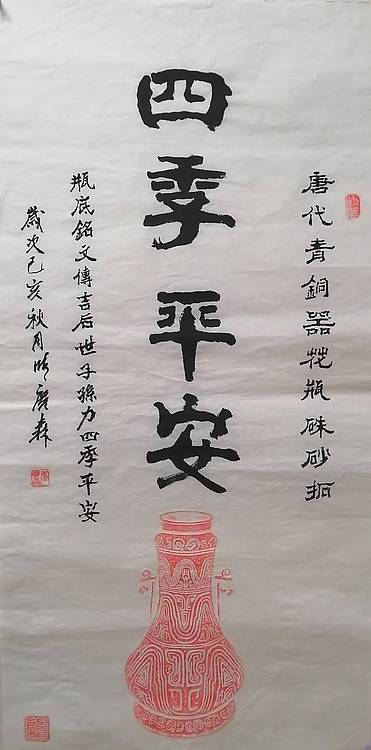 唐代青銅器花瓶硃砂拓
四季平安
瓶底銘文傳吉后世子孫力四季平安
歲次己亥秋月